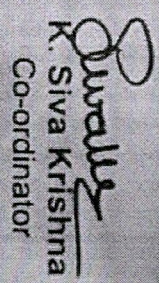 K. Siva Krishna
Co-ordinator